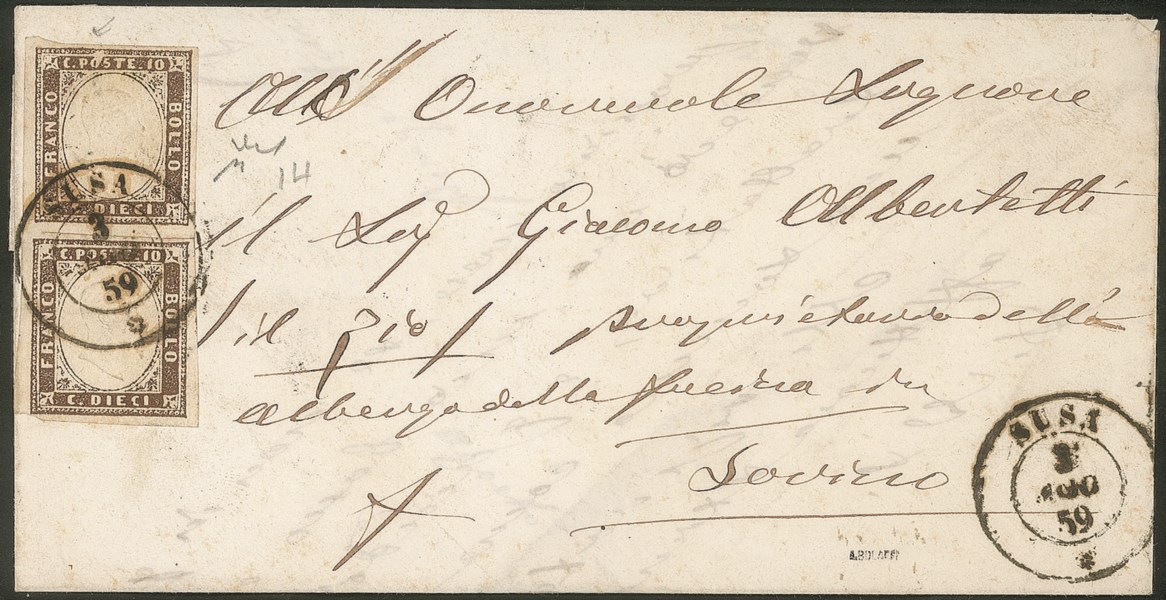 C. POSTE 10
FRANCO
BOLLO
C. DIECI
SUSA
3
59
C. POSTE 10
FRANCO
BOLLO
C. DIECI
All Onorevole Signore
14
il Sig Giacomo Albertetti
il Zio proprietario della
albergo della fucina in
Torino
SUSA
3
59
A.BOLAFFI